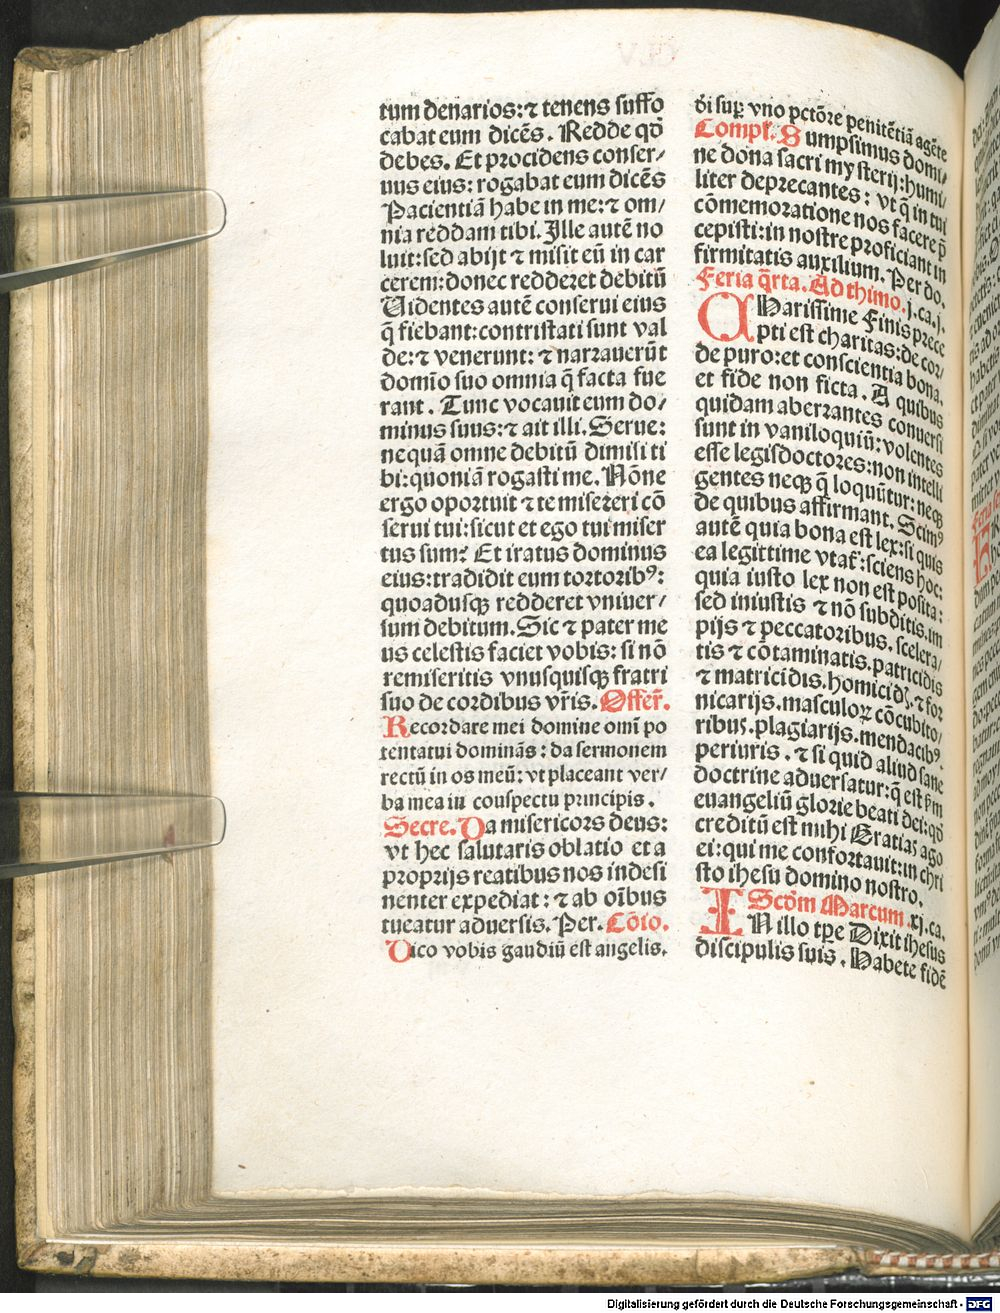 tum denarios: ⁊ tenens suffo
cabat eum dicēs. Redde qḋ
debes. Et procidens conser/
uus eius: rogabat eum dicēs
Pacientiā habe in me: ⁊ om/
nia reddam tibi. Ille autē no
luit: sed abijt ⁊ misit eū in car
cerem: donec redderet debitū
Uidentes autē conserui eius
q̄ fiebant: contristati sunt val
de: ⁊ venerunt: ⁊ narrauerūt
domīo suo omnia q̄ facta fue
rant. Tunc vocauit eum do/
minus suus: ⁊ ait illi. Serue:
nequā omne debitū dimisi ti
bi: quoniā rogasti me. Nōne
ergo oportuit ⁊ te misereri cō
serui tui: sicut et ego tui miser
tus sum? Et iratus dominus
eius: tradidit eum tortoribꝰ:
quoadusqꝫ redderet vniuer/
sum debitum. Sic ⁊ pater me
us celestis faciet vobis: si nō
remiseritis vnusquisqꝫ fratri
suo de cordibus vr̄is. Offer̄.
Recordare mei domine om̄i po
tentatui dominās: da sermonem
rectū in os meū: vt placeant ver/
ba mea in conspectu principis.
Secre. Da misericors deus:
vt hec salutaris oblatio et a
proprijs reatibus nos indesi
nenter expediat: ⁊ ab oībus
tueatur aduersis. Per. Cōio.
Dico vobis gaudiū est angelis.
di suꝑ vno pctōre penitētiā agēte
Compl̄. Sumpsimus domi/
ne dona sacri mysterij: humi/
liter deprecantes: vt q̄ in tui
cōmemoratione nos facere p̄
cepisti: in nostre proficiant in
firmitatis auxilium. Per do.
Feria q̄rta. Ad thimo. j. ca. j.
CHarissime Finis prece
pti est charitas: de cor/
de puro: et conscientia bona.
et fide non ficta. A quibus
quidam aberrantes conuersi
sunt in vaniloquiū: volentes
esse legisdoctores: non intelli
gentes neqꝫ q̄ loquūtur: neqꝫ
de quibus affirmant. Scimꝰ
autē quia bona est lex: si quis
ea legittime vtat᷑: sciens hoc:
quia iusto lex non est posita:
sed iniustis ⁊ nō subditis. im
pijs ⁊ peccatoribus. scelera/
tis ⁊ cōtaminatis. patricidis
⁊ matricidis. homicidꝭ. ⁊ for
nicarijs. masculoꝝ cōcubito/
ribus. plagiarijs. mendacibꝰ.
periuris. ⁊ si quid aliud sane
doctrine aduersatur: q̄ est ẜm
euangeliū glorie beati dei: qḋ
creditū est mihi Gratias ago
ei: qui me confortauit: in chri
sto ihesu domino nostro.
Scd̄m Marcum. xj. ca.
IN illo tp̄e Dixit ihesus
discipulis suis. Habete fidē
Digitalisierung gefördert durch die Deutsche Forschungsgemeinschaft - DFG